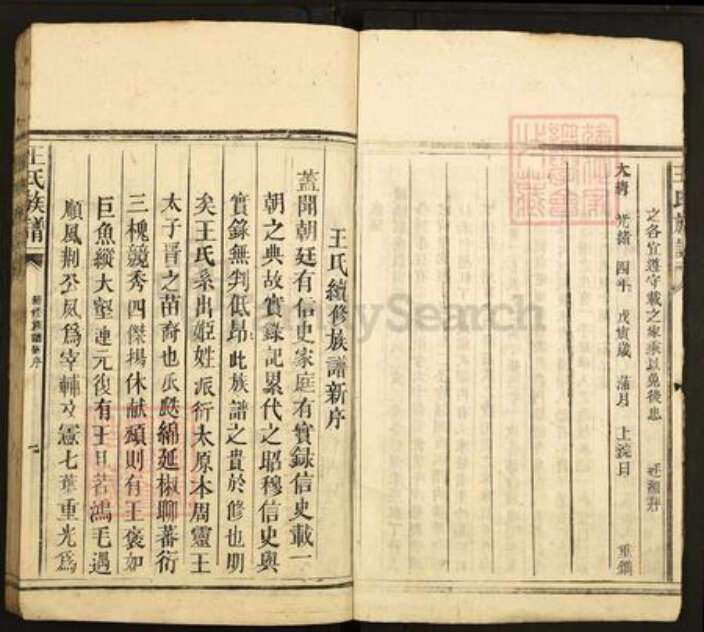 王氏族譜
之各宜遵守載之家乘以免後患
大清 光緒 四年 戊寅歲 蒲月 上浣日
重鐫
王氏續修族譜新序
蓋聞朝廷有信史家庭有實錄信史載一
朝之典故實錄記累代之昭穆信史與
實錄無判低昂此族譜之貴於修也明
矣王氏系出姬姓派衍太原本周靈王
太子晉之苗裔也瓜瓞綿延椒聊蕃衍
三槐競秀四傑揚休献頌則有王褒如
巨魚縱大壑連元復有王曰若鴻毛遇
順風荆公夙為宰輔文憲七葉重光為
王氏族譜